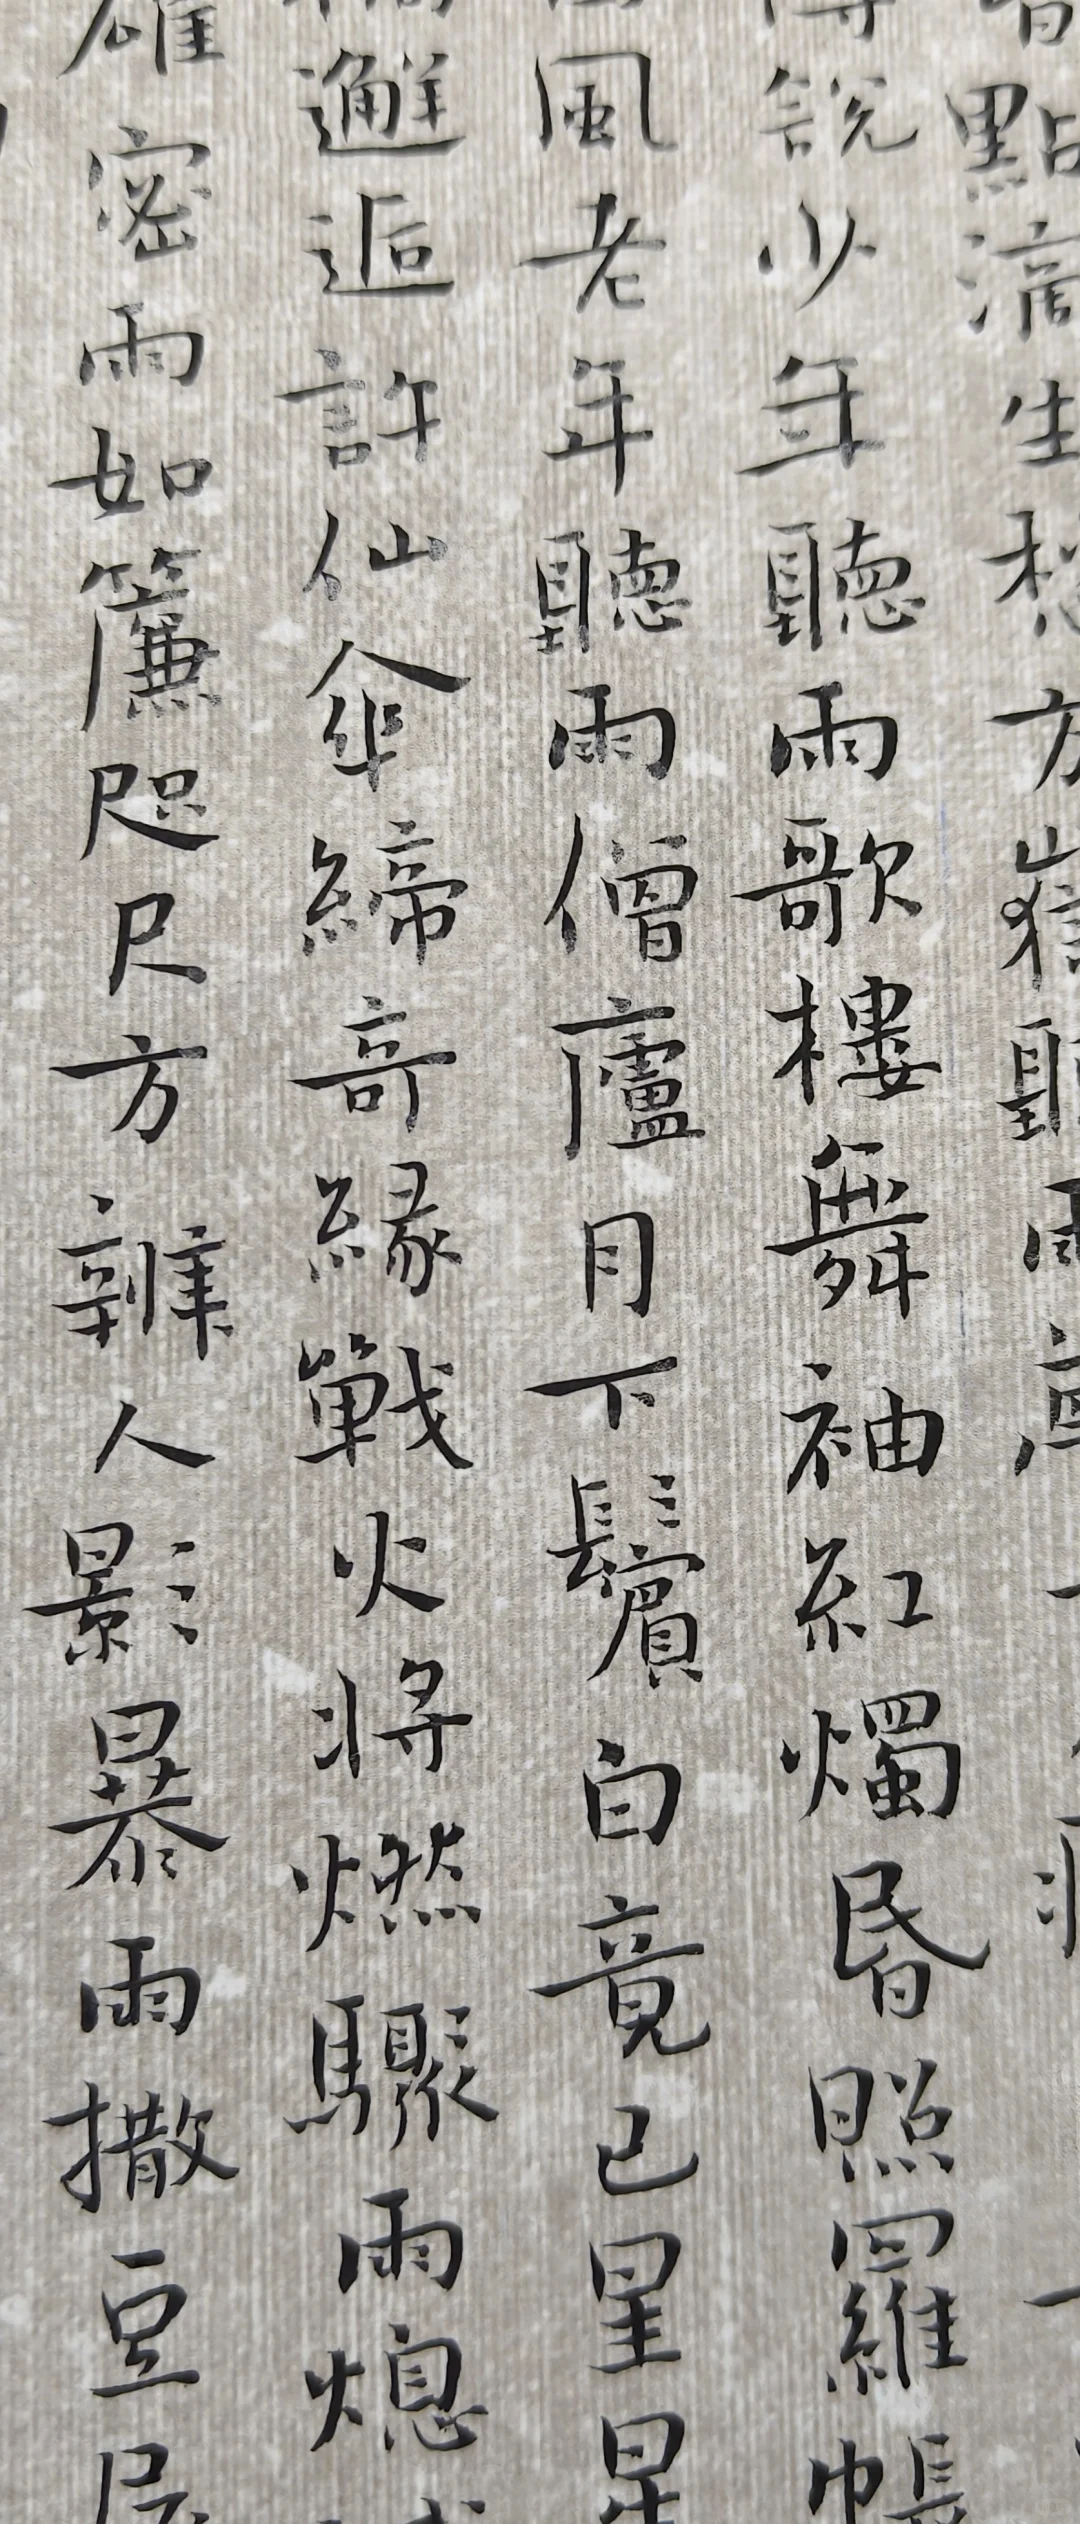 點滴生愁方嶽聽雨
說少年聽雨歌樓舞袖紅燭昏照羅帳
風老年聽雨僧廬月下鬢白竟已星星
邂逅許仙傘締奇緣戰火將燃驟雨熄
密雨如簾咫尺方辨人影暴雨撒豆